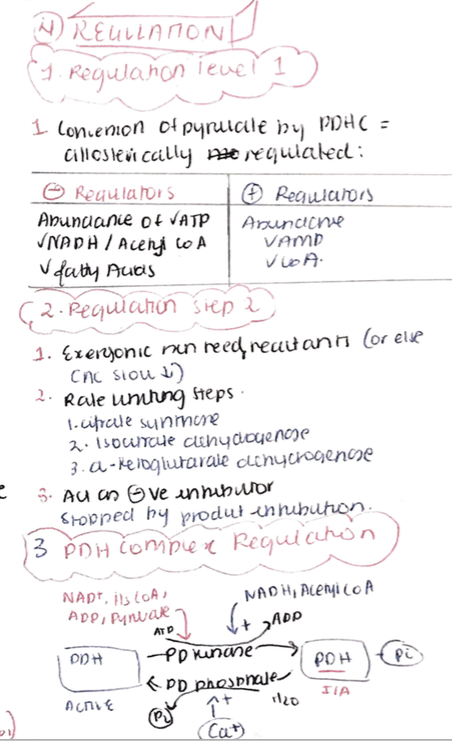 4) REGULATION
1. Regulation level 1
1. Conversion of pyruvate by PDHC =
allosterically regulated:
⊖ Regulators
⊕ Regulators
Abundance of √ATP
√NADH / Acetyl CoA
√fatty Acids
Abundance
√AMP
√CoA.
2. Regulation Step 2
1. Exergonic rxn need reactants (or else
CAC slow ↓)
2. Rate limiting steps.
1. citrate synthase
2. Isocitrate dehydrogenase
3. α-Ketoglutarate dehydrogenase
3. All as ⊖ve inhibitor
stopped by product inhibition.
3 PDH complex Regulation
NAD⁺, HsCoA,
ADP, Pyruvate
NADH, Acetyl CoA
ATP
+
ADD
PDH
PD kinase
PDH
Pi
PD phosphate
ACTIVE
Pi
+
H20
I/A
Ca+